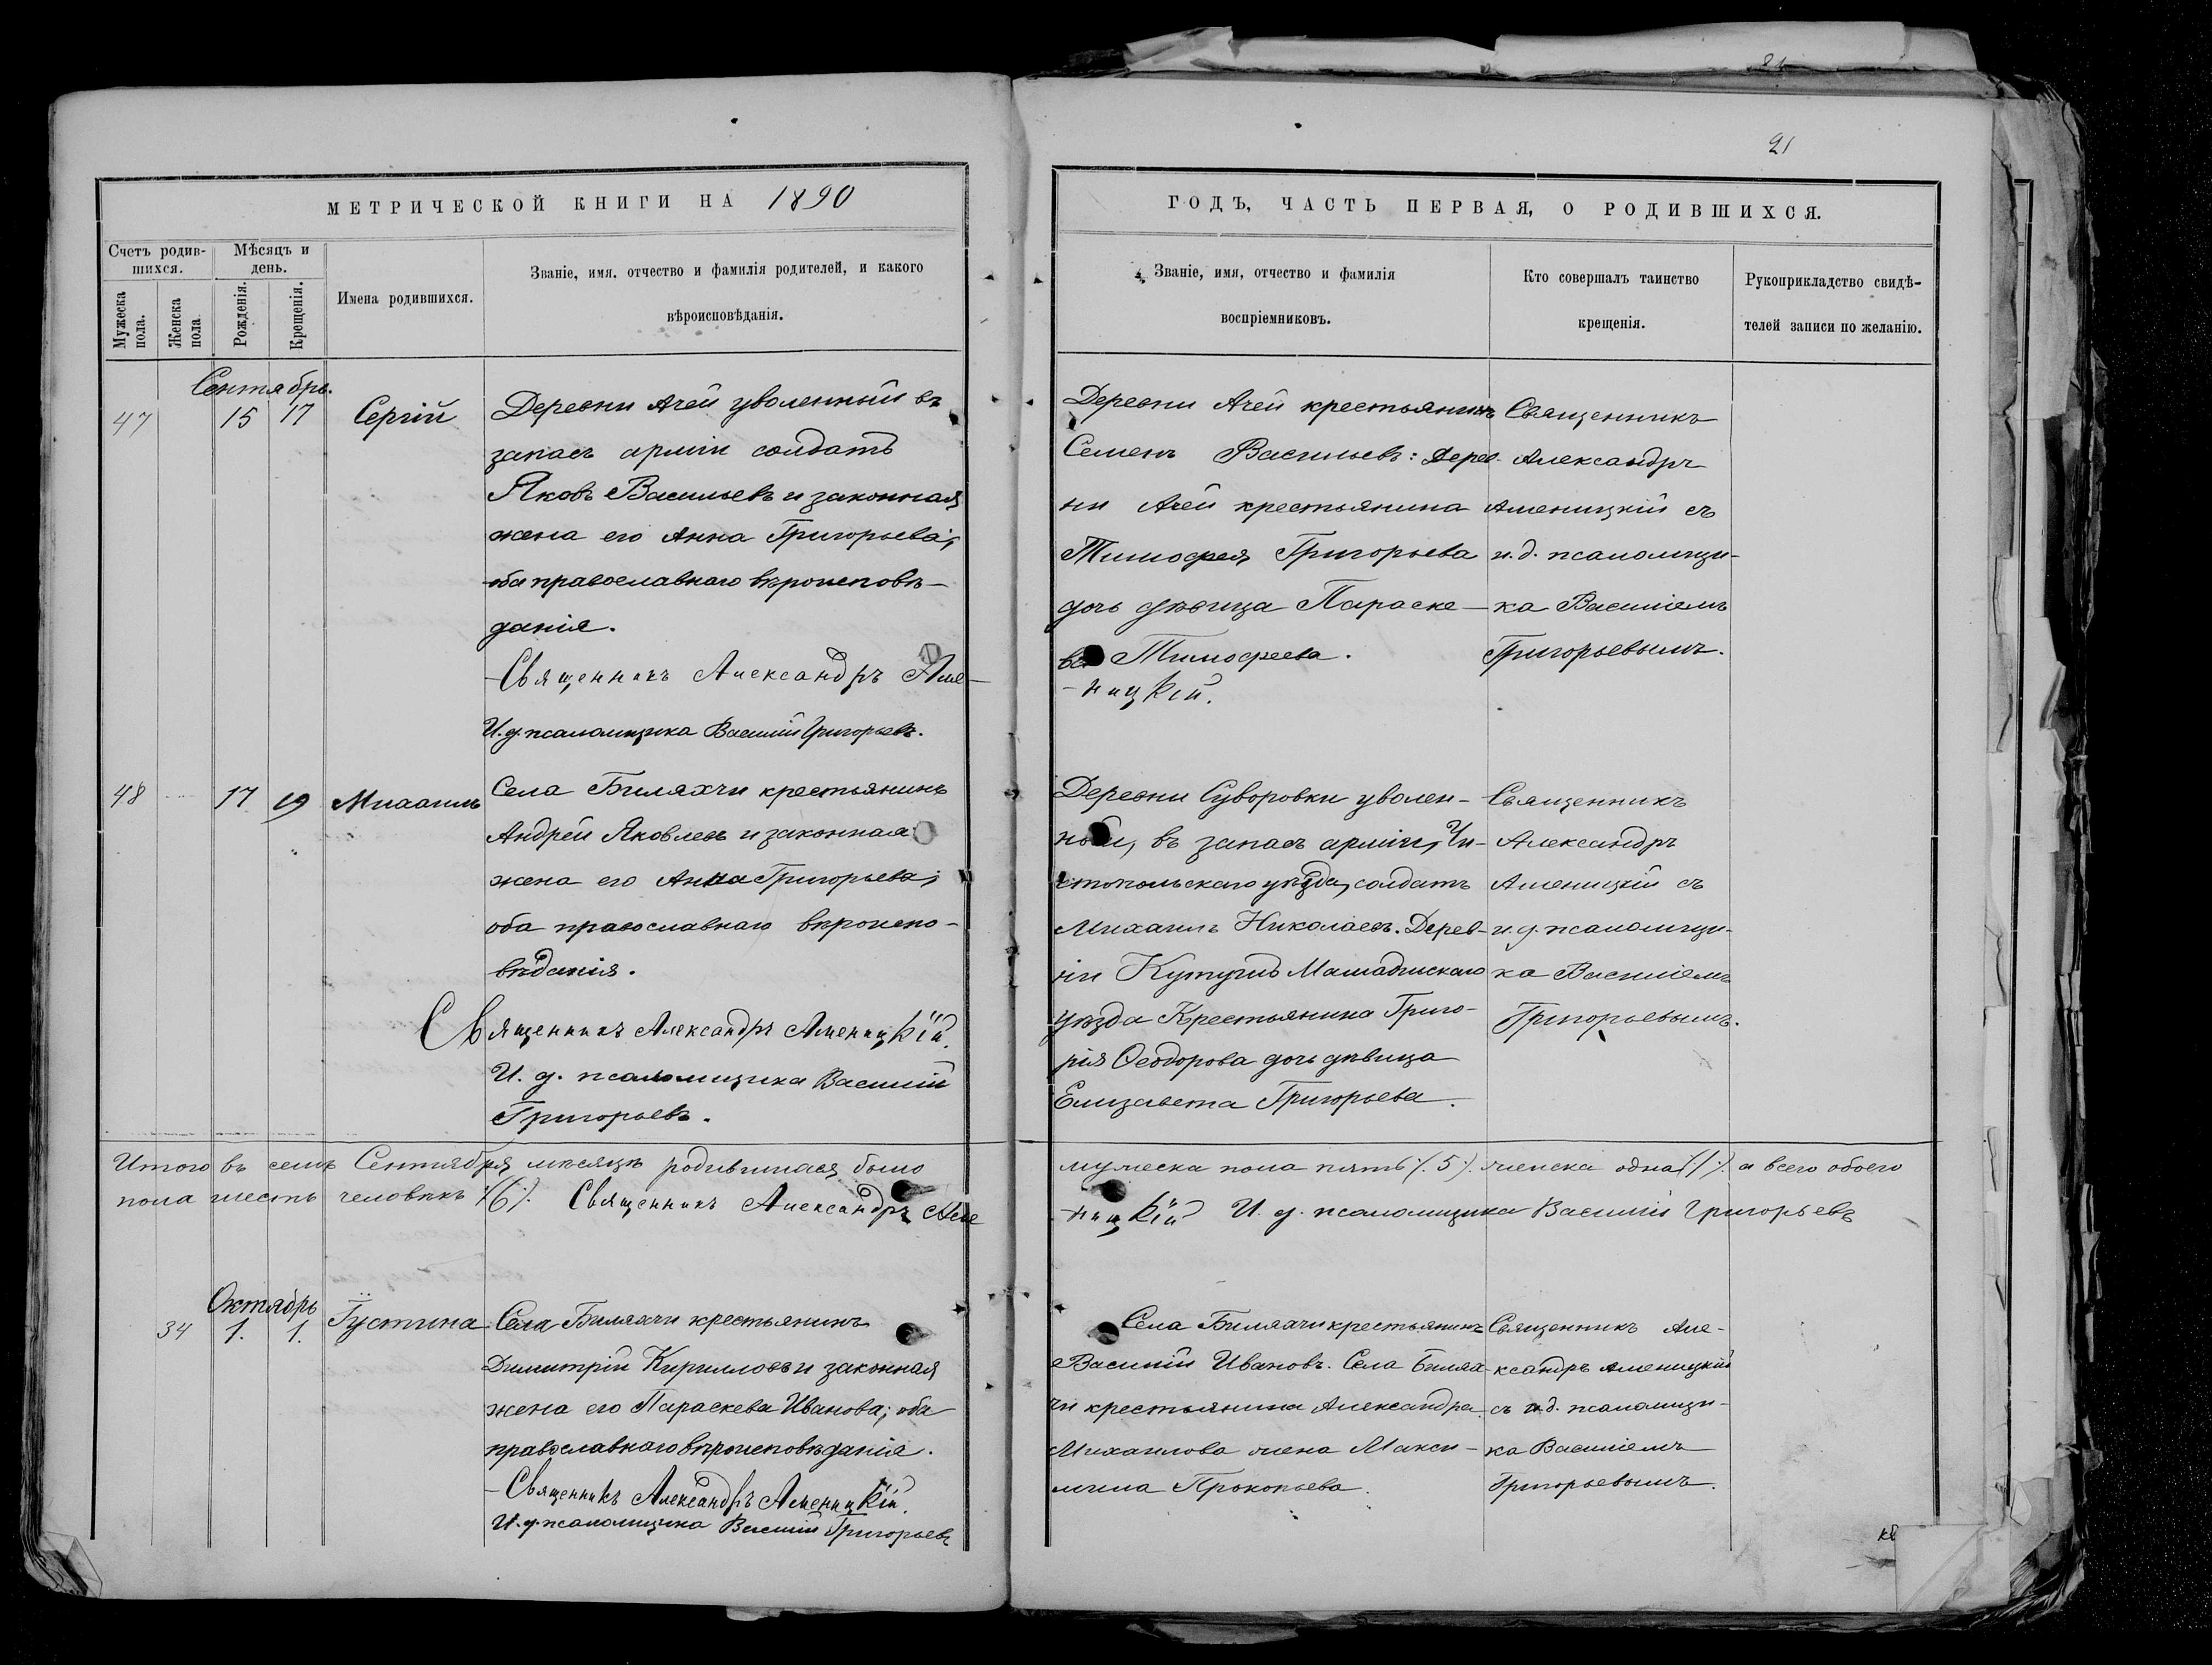 21
МЕТРИЧЕСКОЙ КНИГИ НА 1890
Счетъ родив-
шихся.
Мѣсяцъ и
день.
Мужеска
пола.
Женска
пола
Рожденія.
Крещенія.
Имена родившихся.
Званіе, имя, отчество и фамилія родителей, и какого
вѣроисповѣданія.
Сентябрь.
47 15 17 Сергій
Деревни Ачей уволенный въ
запасъ арміи солдатъ
Яковъ Васильевъ и законная
жена его Анна Григорьева;
оба православнаго вѣроисповѣ-
данія.
Священникъ Александръ Аме-
И.д. псаломщика Василій Григорьевъ.
48 17 19 Михаилъ
Села Биляхчи крестьянинъ
Андрей Яковлевъ и законная
жена его Анна Григорьева;
оба православнаго вѣроиспо-
вѣданія.
Священникъ Александръ Аменицкій.
И. д. псаломщика Василій
Григорьевъ.
Итого въ семъ Сентябрѣ мѣсяцѣ родившихся было
пола шесть человѣкъ /6/. Священникъ Александръ Аме
Октябрь
34 1. 1. Іустина
Села Биляхчи крестьянинъ
Димитрій Кирилловъ и законная
жена его Параскева Иванова; оба
православнаго вѣроисповѣданія.
Священникъ Александръ Аменицкій.
И. д. псаломщика Василій Григорьевъ
ГОДЪ, ЧАСТЬ ПЕРВАЯ, О РОДИВШИХСЯ.
Званіе, имя, отчество и фамилія
воспріемниковъ.
Кто совершалъ таинство
крещенія.
Рукоприкладство свидѣ-
телей записи по желанію.
Деревни Ачей крестьянинъ
Семенъ Васильевъ: Дерев-
ни Ачей крестьянина
Тимофея Григорьева
дочь дѣвица Параске-
ва Тимофеева.
-ницкій.
Священникъ
Александръ
Аменицкій съ
и.д. псаломщи-
ка Василіемъ
Григорьевымъ.
Деревни Суворовки уволен-
ный, въ запасъ арміи, Чи-
стопольскаго уѣзда, солдатъ
Михаилъ Николаевъ. Дерев-
ни Мамадышскаго
уѣзда Крестьянина Григо-
рія Ѳеодорова дочь дѣвица
Елизавета Григорьева.
Священникъ
Александръ
Аменицкій съ
и.д. псаломщи-
ка Василіемъ
Григорьевымъ.
мужеска пола пять /5/. женска одна /1/. а всего обоего
-ницкій И. д. псаломщика Василій Григорьевъ
Села Биляхчи крестьянинъ
Василій Ивановъ. Села Билях-
чи крестьянина Александра
Михаилова жена Макси-
мила Прокопьева.
Священникъ Але-
ксандръ Аменицкій
съ и.д. псаломщи-
ка Василіемъ
Григорьевымъ.